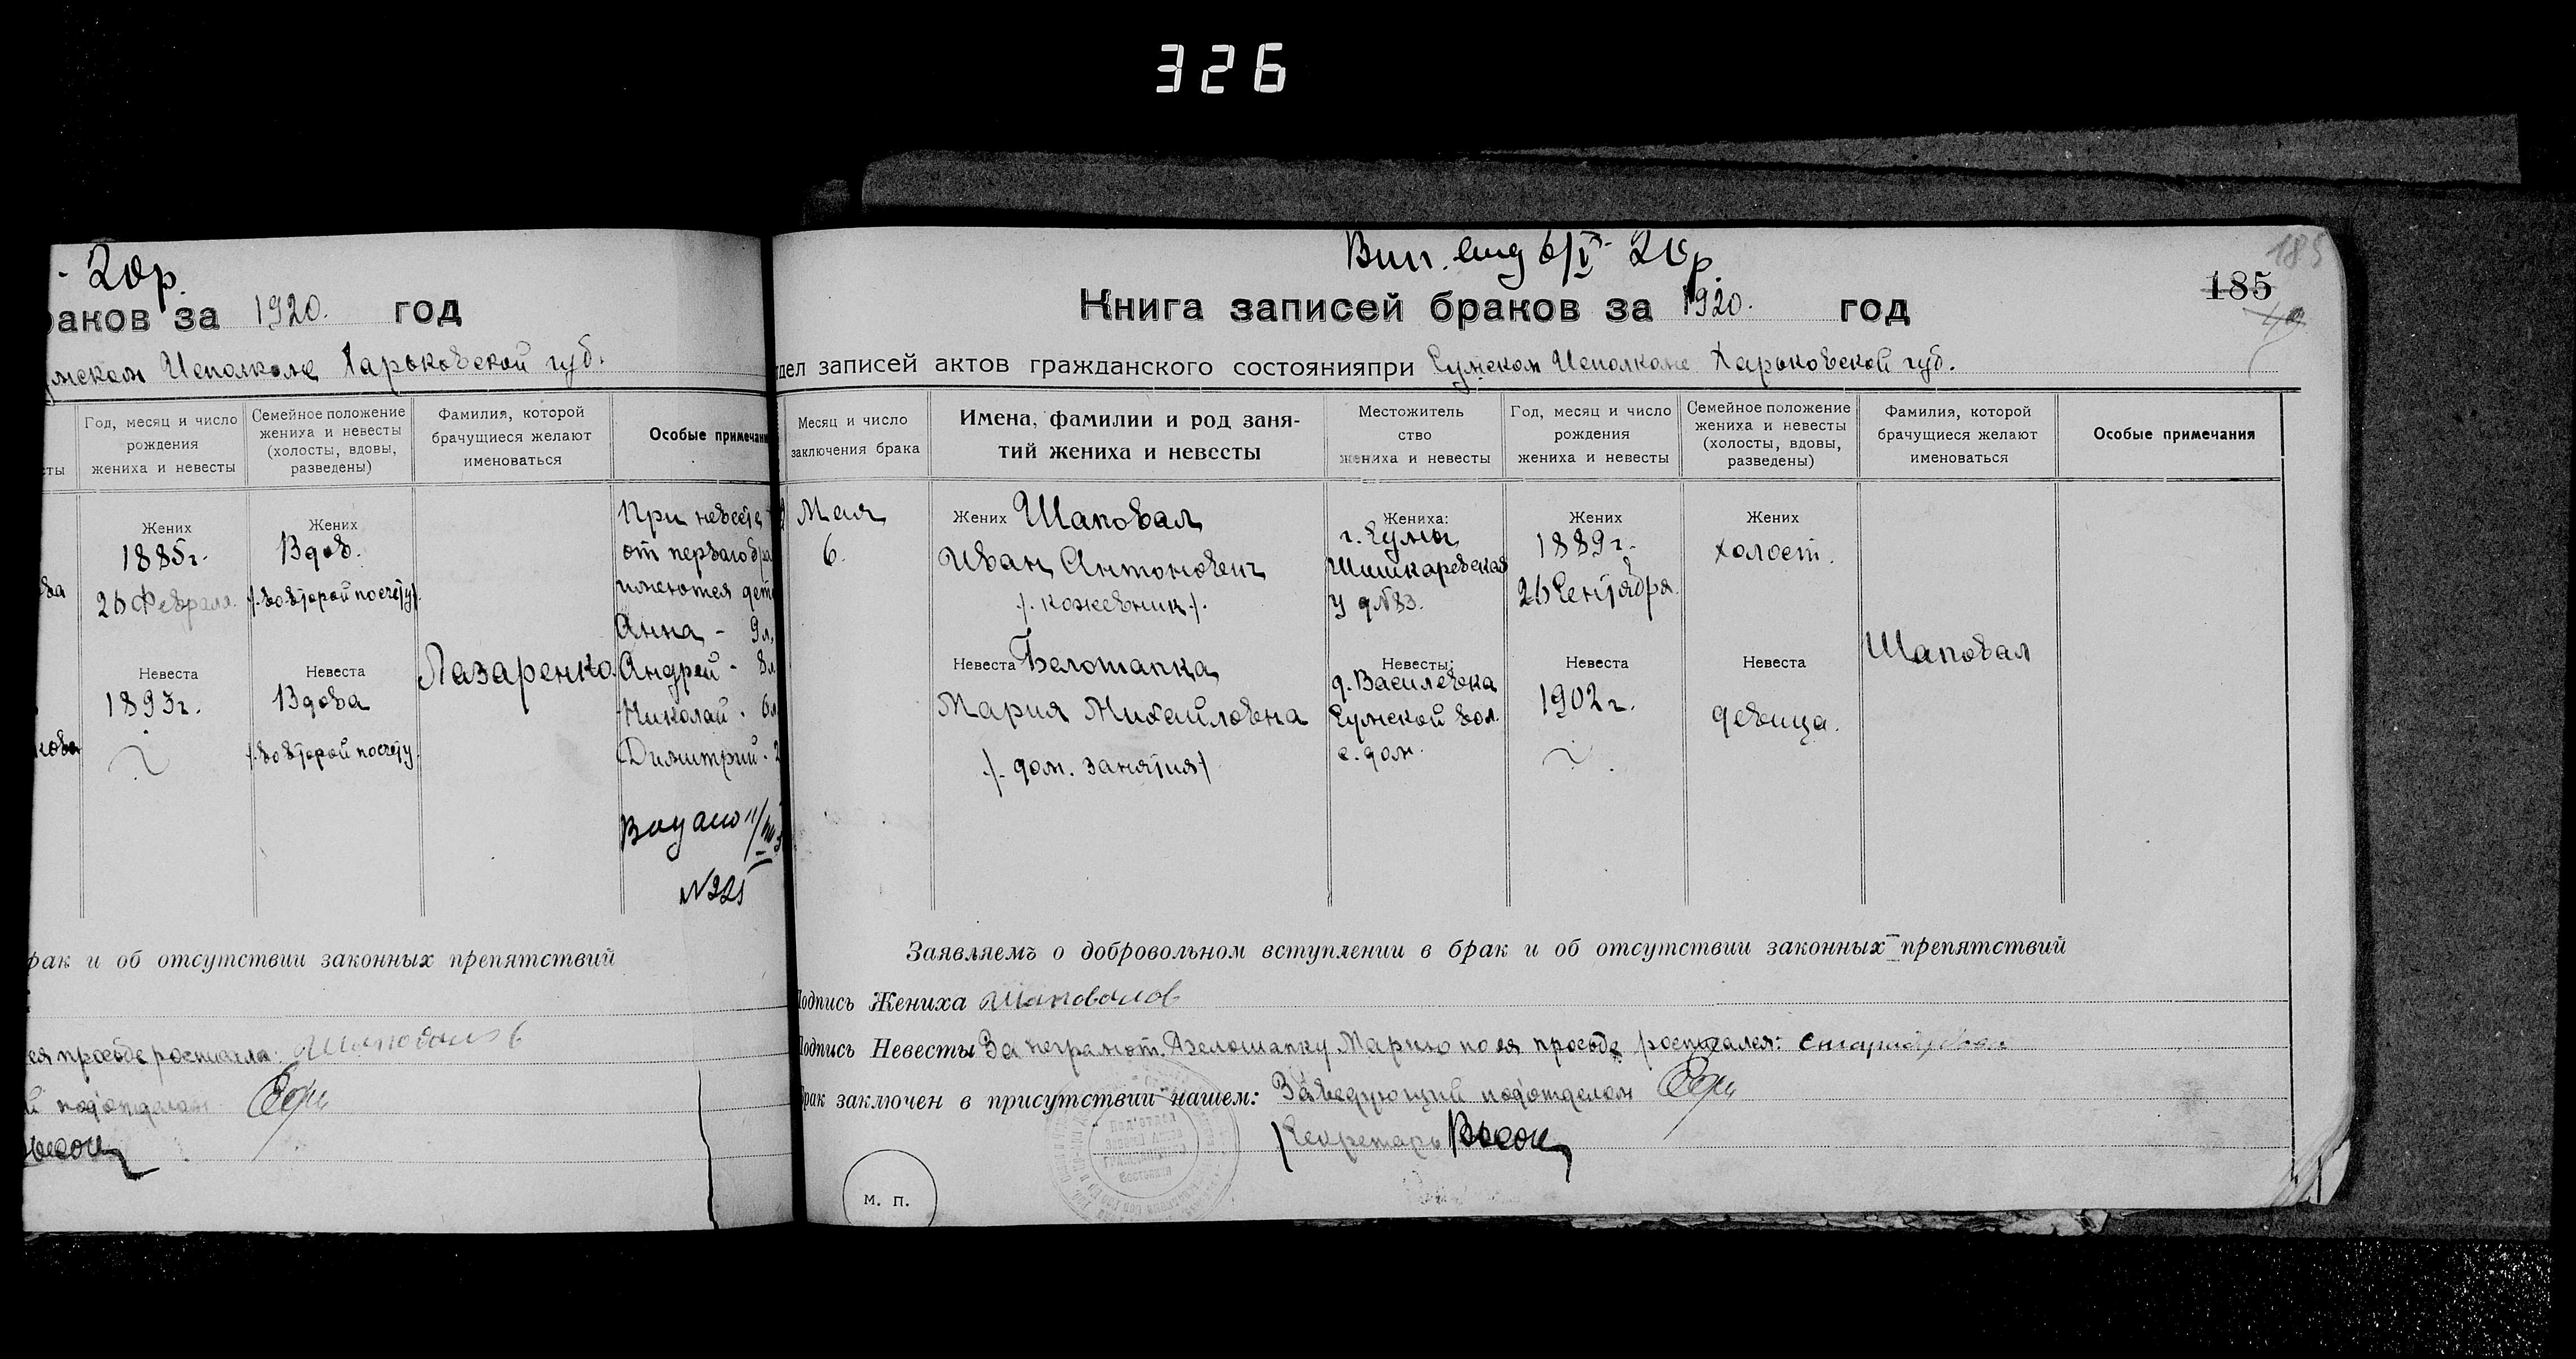 326
- 20р.
раков за 1920. год
умском Исполкоме Харьковской губ.
Год, месяц и число
рождения
жениха и невесты
Семейное положение
жениха и невесты
(холосты, вдовы,
разведены)
Фамилия, которой
брачущиеся желают
именоваться
Особые примечани
сты
Жених
1885 г.
26 Февраля.
Жених
Вдов.
/. во второй по счету/.
Невеста
1893 г.
Невеста
Вдова
/. во второй по счету.
Лазаренко.
При невесте
от первого бра
имеются дети
Анна - 9 л.
Андрей - 8 л
Николай - 6 л
Димитрий - 2
Видано 11/III
N325
ова
кова
брак и об отсутствии законных препятствий
ея просьбе росписала:
й под'отделом
185
Вип. вид 6/V - 20р.
185
Книга записей браков за 1920. год
тдел записей актов гражданского состоянияпри Сумском Исполкоме Харьковской губ.
Месяц и число
заключения брака
Имена, фамилии и род заня-
тий жениха и невесты
Местожитель
ство
жениха и невесты
Год, месяц и число
рождения
жениха и невесты
Семейное положение
жениха и невесты
(холосты, вдовы,
разведены)
Фамилия, которой
брачущиеся желают
именоваться
Особые примечания
Мая
6.
Жених Шаповал
Иван Антонович
/. кожевник /.
Жениха:
г. Сумы
Шишкаревская
у д№83.
Жених
1889 г.
26 Сентября.
Жених
холост.
Невеста Белошапка
Мария Михайловна
/. дом. занятия /
Невесты:
д. Василевка
Сумской вол.
с. дом.
Невеста
1902 г.
Невеста
девица.
Шаповал
Заявляемъ о добровольном вступлении в брак и об отсутствии законных препятствий
Подпись Жениха Шаповалов
Подпись Невесты За неграмот. Белошапку Марию по ея просьбе росписался:
Брак заключен в присутствии нашем: Заведующий под'отделом
Секретарь
Под'отдел
Записи Актов
Гражданского
Состояния
м. п.